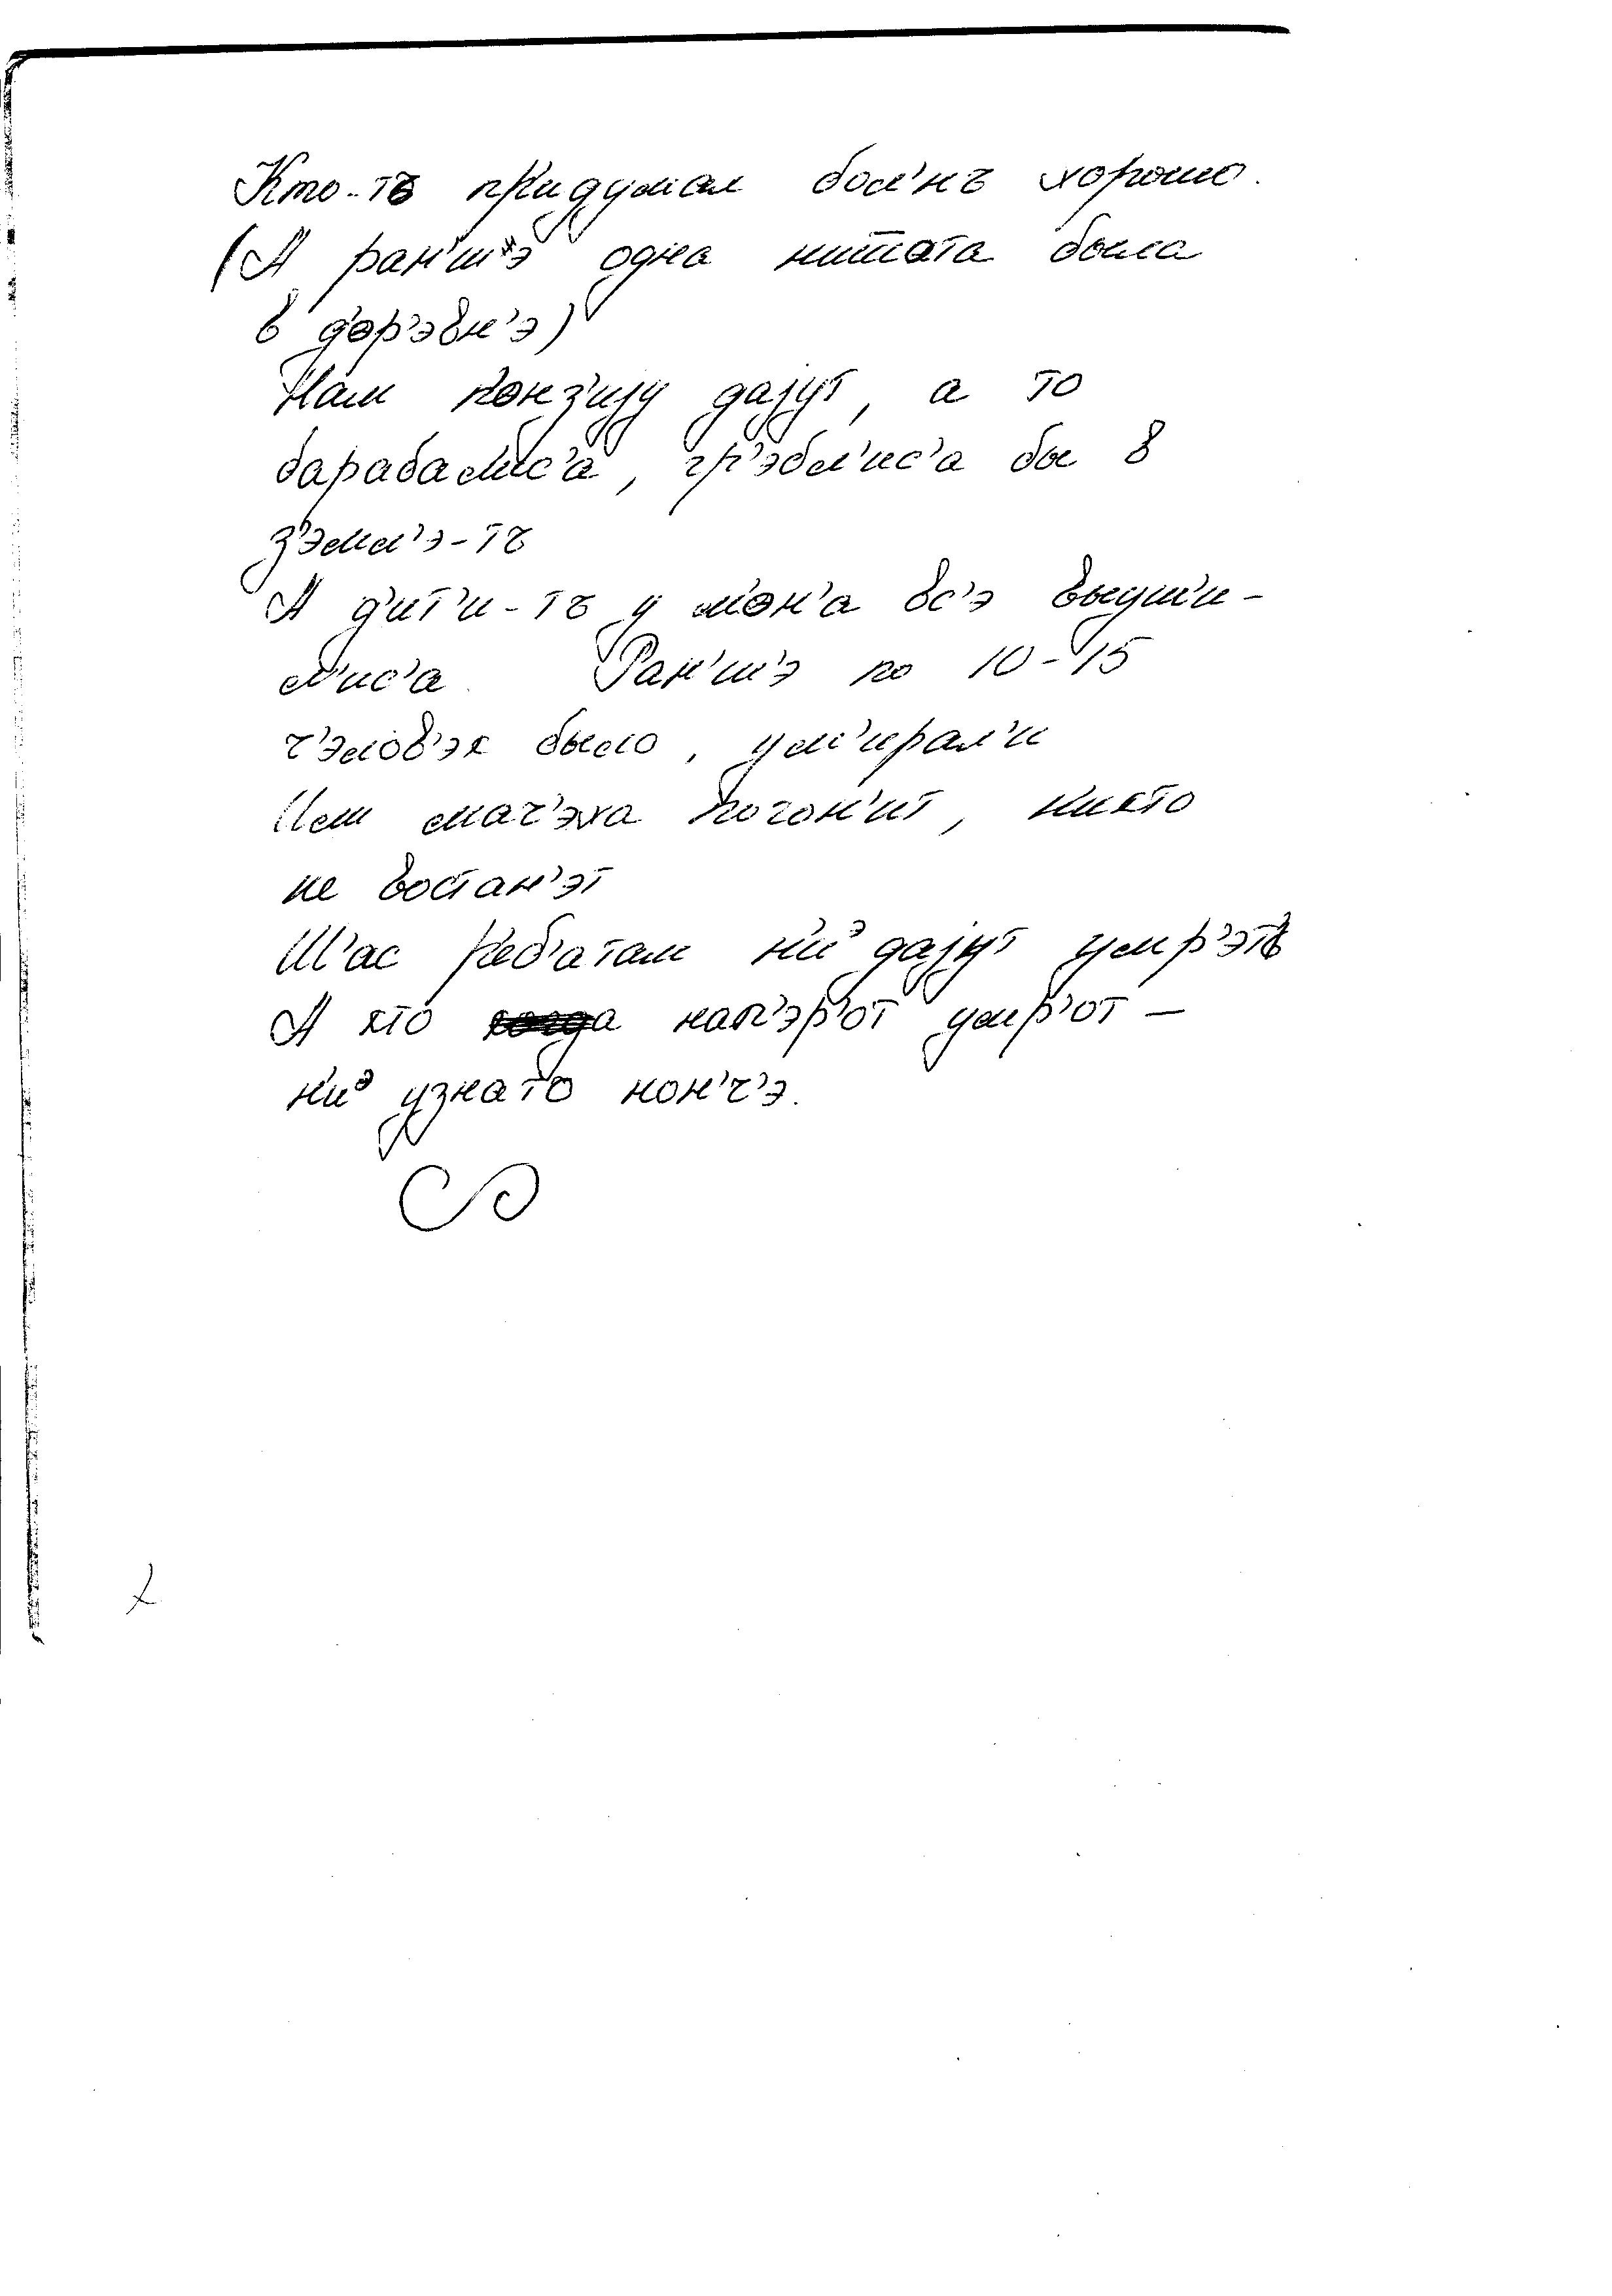 Кто-тъ придумал бол'нъ хорошо.
(А ран'ш'э одна нищата была
в д'ор'эвн'э)
Нам п'онз'иjу даjут, а то
барабалис'а, гр'эбл'ис'а бы в
з'эмл'э-тъ
А д'ит'и-тъ у м'он'а вс'э выуч'и-
л'ис'а. Ран'ш'э по 10-15
ч'элов'эк было, ум'ирал'и
мач'эха погон'ит, никто
не востан'эт
Ш'ас р'еб'атам н'иэ даjут умр'эт'
А кто нап'эр'от умр'от –
н'иэ узнато нон'ч'э.